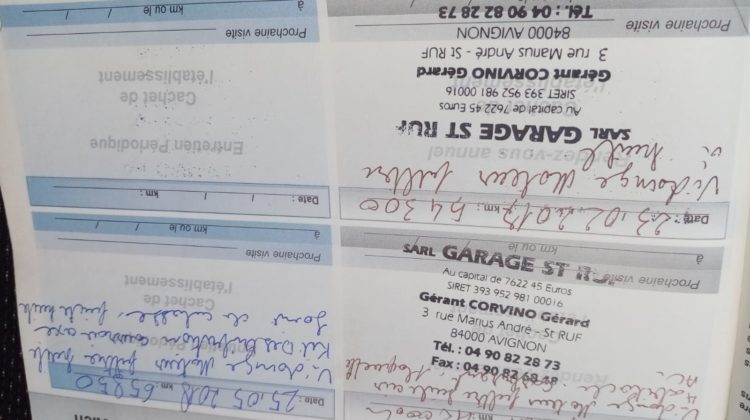 Vidange Moteur filtre huile air
Plaquette
AV
SARL GARAGE ST RUF
Au capital de 7622 45 Euros
SIRET 393 952 981 00016
Gérant CORVINO Gérard
3 rue Marius André - St RUF
84000 AVIGNON
Tél. : 04 90 82 28 73
Fax : 04 90 82 68 68
Prochaine visite
km ou le
Date : 25.05.2018 km: 65850
Vidange Moteur filtre huile
Kit Distribution courroie axe
Joint de culasse, fuite huile
Cachet de
l'établissement
Prochaine visite
à km ou le / /
Date : 23.02.2017 km: 54300
Vidange Moteur filtre
huile
Rendez-vous annuel
SARL GARAGE ST RUF
Au capital de 7622 45 Euros
SIRET 393 952 981 00016
Gérant CORVINO Gérard
3 rue Marius André - St RUF
84000 AVIGNON
Tél. : 04 90 82 28 73
Prochaine visite
Date : / / km :
Entretien Périodique
Cachet de
l'établissement
Prochaine visite
à km ou le / /